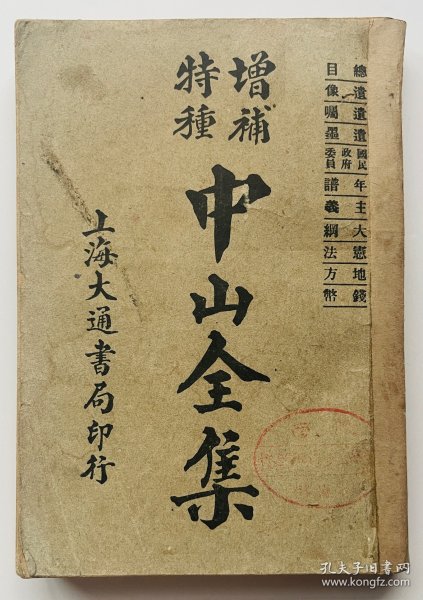 總目
遺像
遺囑
遺墨
國民政府委員
年譜
主義
大綱
憲法
地方
錢幣
增補
特種
中山全集
上海大通書局印行
孔夫子旧书网
www.kongfz.com